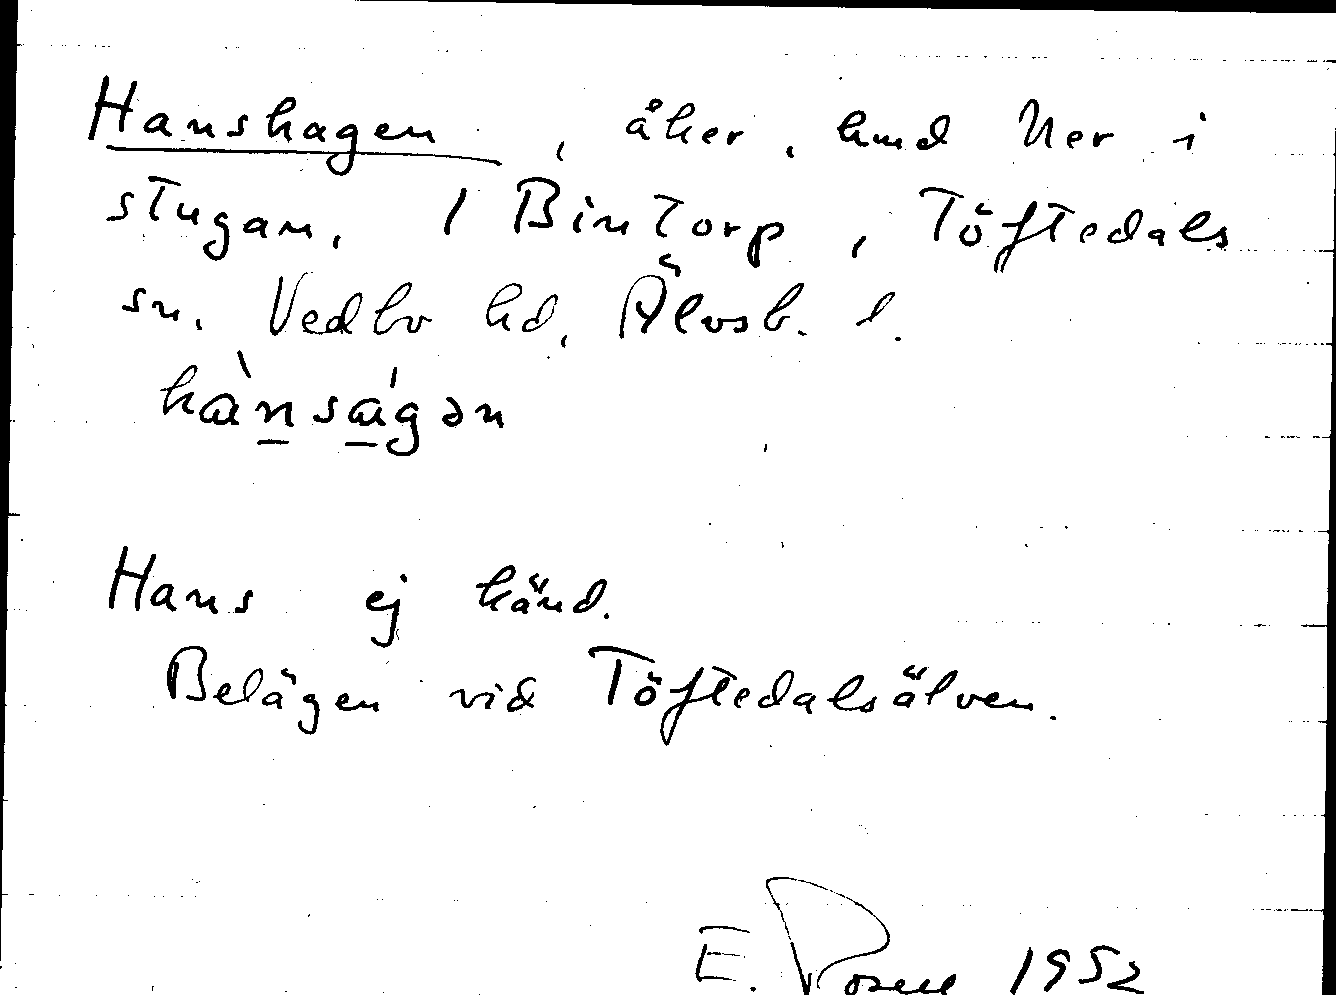 Hanshagen, åker, hmd Ner i
stugan, 1 Bintorp, Töftedals
sn. Vedbo hd, Älvsb. l.
hànságən
Hans ej känd.
Belägen vid Töftedalsälven.
E. Rosell 1952